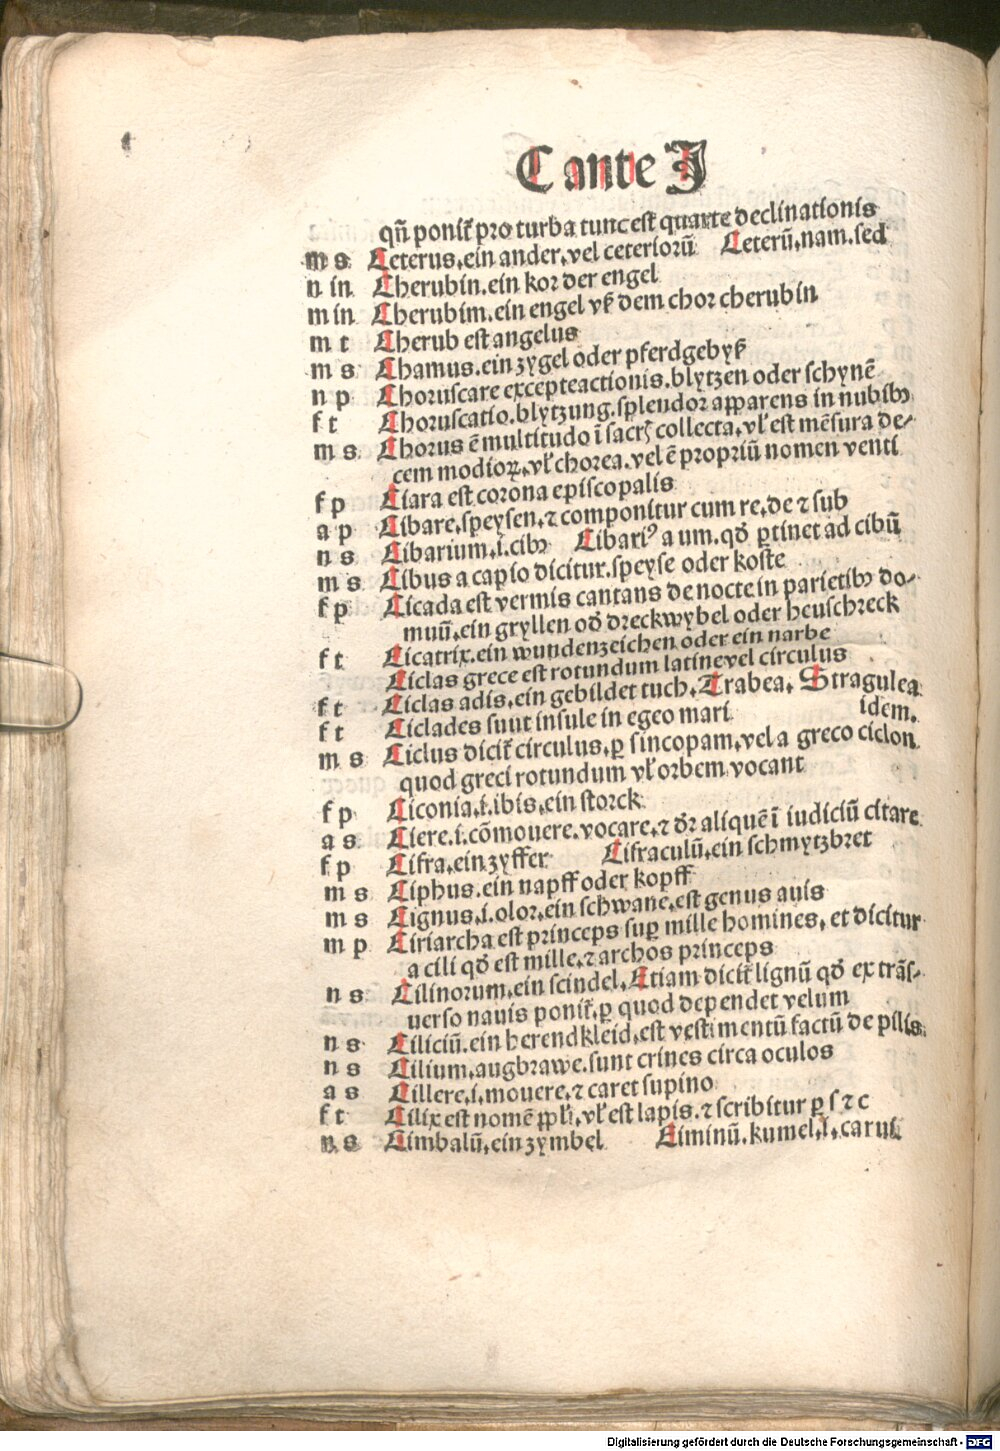 C ante I
qñ ponit᷑ pro turba tunc est quarte declinationis
m s Ceterus.ein ander.vel ceteriorū Ceterū.nam.sed
n in Cherubin.ein kor der engel
m in Cherubim.ein engel vß dem chor cherubin
m t Cherub est angelus
m s Chamus.ein zygel oder pferdgebyß
n p Choruscare excepteactionis.blytzen oder schynē
f t Choruscatio.blytzung.splendor apparens in nubibꝯ
m s Chorus ē multitudo ī sacrꝭ collecta.vl̛ est mēsura de⸗
cem modioꝝ.vl̛ chorea.vel ē propriū nomen venti
f p Ciara est corona episcopalis
a p Cibare.speysen.⁊ componitur cum re.de ⁊ sub
n s Cibarium.i.cibꝯ Cibariꝰ a um.qd̛ ꝑtinet ad cibū
m s Cibus a capio dicitur.speyse oder koste
f p Cicada est vermis cantans de nocte in parietibꝯ do⸗
muū.ein gryllen od̛ dreckwybel oder heuschreck
f t Cicatrix.ein wundenzeichen oder ein narbe
Ciclas grece est rotundum latine vel circulus
f t Ciclas adis.ein gebildet tuch.Trabea. Stragulea
f t Ciclades sunt insule in egeo mari idem.
m s Ciclus dicit᷑ circulus.ꝑ sincopam.vel a greco ciclon
quod greci rotundum vl̛ orbem vocant
f p Ciconia.i.ibis.ein storck
a s Ciere.i.cōmouere.vocare.⁊ dr̄ aliquē ī iudiciū citare
f p Cifra.ein zyffer Cifraculū.ein schmytzbret
m s Ciphus.ein napff oder kopff
m s Cignus.i.olor.ein schwane.est genus auis
m p Ciriarcha est princeps suꝑ mille homines. et dicitur
a cili qd̛ est mille.⁊ archos princeps
n s Cilinorum.ein scindel.Etiam dicit᷑ lignū qd̛ ex trās⸗
uerso nauis ponit᷑.ꝑ quod dependet velum
n s Ciliciū.ein herend kleid.est vestimentū factū de pilis
n s Cilium.augbrawe.sunt crines circa oculos
a s Cillere.i.mouere.⁊ caret supino
f t Cilix est nomē ꝓpl̛i.vl̛ est lapis.⁊ scribitur ꝑ s ⁊ c
n s Cimbalū.ein zymbel Ciminū.kumel.i.carui
Digitalisierung gefördert durch die Deutsche Forschungsgemeinschaft - DFG